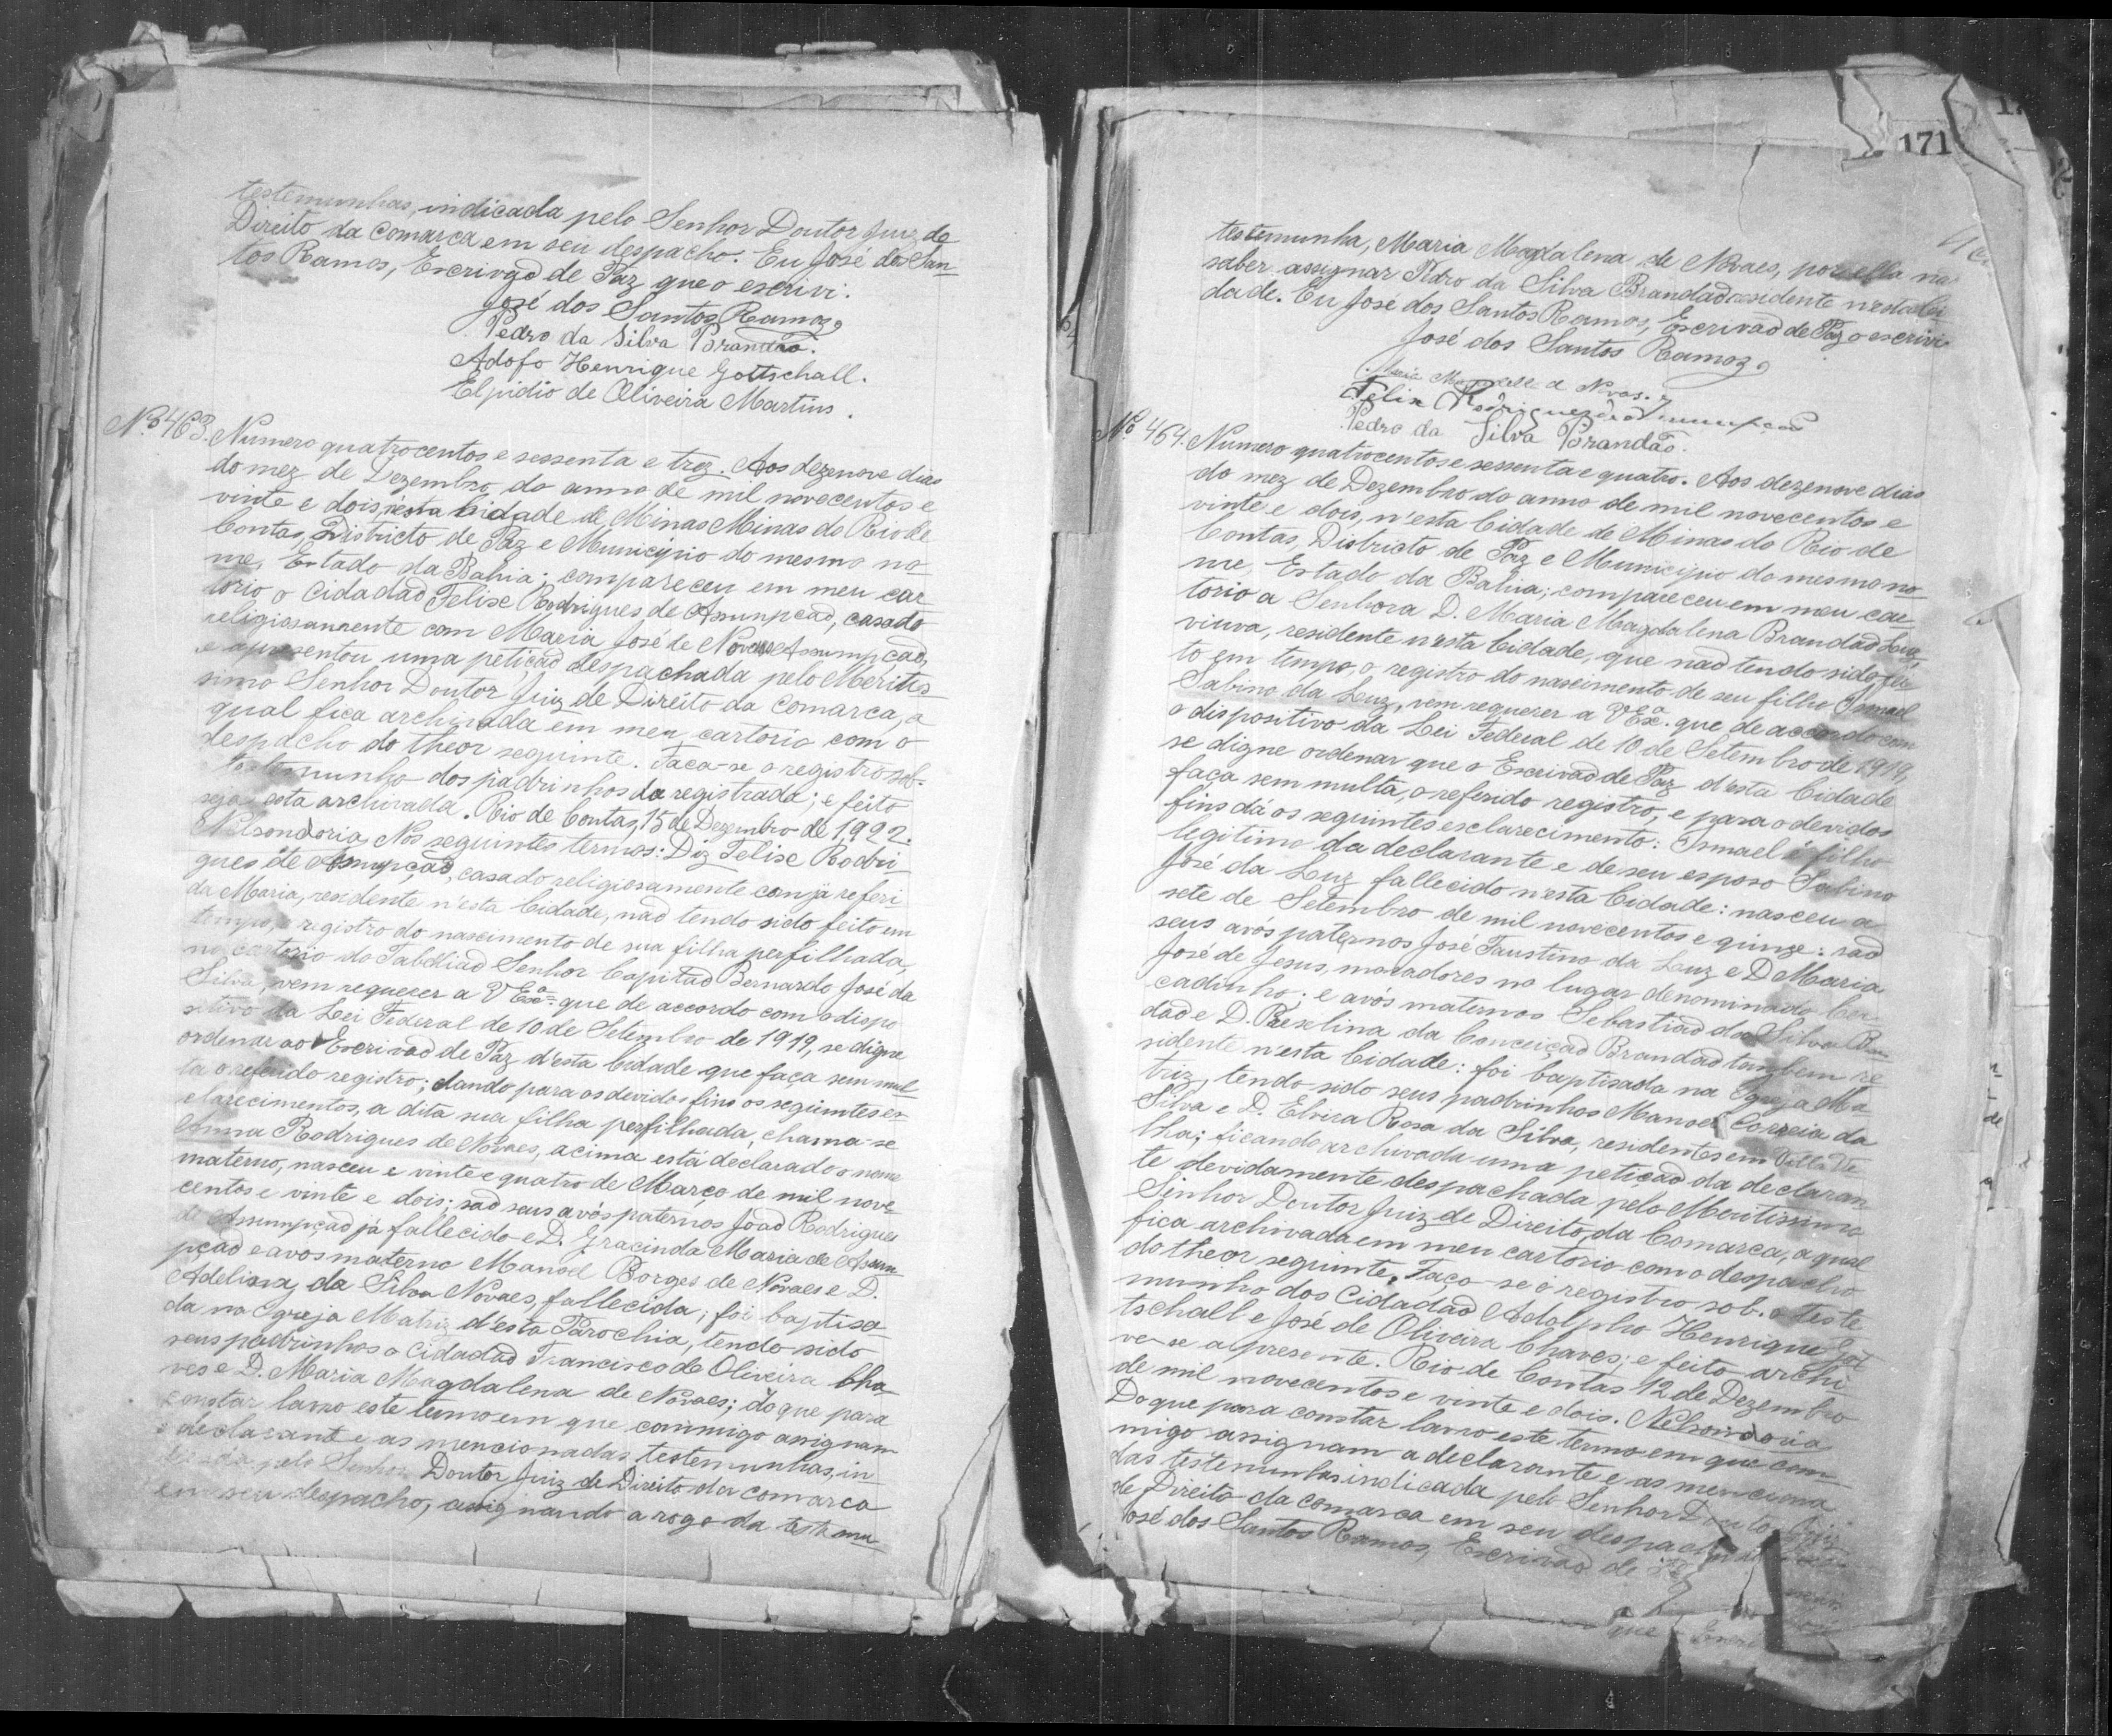 testemunhas, indicada pelo Senhor Doutor Juiz de
Direito da Comarca em seu despacho. Eu José dos San-
tos Ramos, Escrivão de Paz que o escrivi.
José dos Santos Ramos
Pedro da Silva Brandão.
Adofo Henrique Gottschall.
Elpidio de Oliveira Martins.
Nº 463. Numero quatrocentos e sessenta e trez. Aos dezenove dias
do mez de Dezembro do anno de mil novecentos e
vinte e dois, n'esta Cidade de Minas Minas do Rio de
Contas, Districto de Paz e Municipio do mesmo no-
me, Estado da Bahia; compareceu em meu car-
torio o Cidadão Felix Rodrigues de Assumpcão, casado
religiosamente com Maria José de Novaes Assumpção,
e apresentou uma petição despachada pelo Meritis-
simo Senhor Doutor Juiz de Direito da Comarca, a
qual fica archivada em meu cartorio com o
despacho do theor seguinte. Faca-se o registro sob-
testemunho dos padrinhos da registrada; e feito
seja esta archivada. Rio de Contas, 15 de Dezembro de 1922.
Nelsondoria. Nos seguintes termos: Diz Felix Rodri-
gues de Assumpção, casado religiosamente com já referi
da Maria, residente n'esta Cidade, não tendo sido feito em
tempo, o registro do nascimento de sua filha perfilhada,
no cartorio do Tabellião Senhor Capitão Bernardo José da
Silva, vem requerer a V Exª. que de accordo com o dispo
sitivo da Lei Federal de 10 de Setembro de 1919, se digne
ordenar ao Escrivão de Paz d'esta Cidade que faça sem mul-
ta o referido registro; dando para os devidos fins os seguintes es-
clarecimentos, a dita sua filha perfilhada, chama-se
Anna Rodrigues de Novaes, acima está declarado o nome
materno, nasceu e vinte e quatro de Março de mil nove-
centos e vinte e dois; são seus avós paternos João Rodrigues
de Assumpção já fallecido e D. Gracinda Maria de Assum-
pção e avos materno Manoel Borges de Novaes e D.
Adeliana da Silva Novaes, fallecida; foi baptisa-
da na Egreja Matriz d'esta Parochia, tendo sido
seus padrinhos o Cidadão Francisco de Oliveira Cha-
ves e D. Maria Magdalena de Novaes; do que para
constar lavro este termo em que commigo assignam
o declarante e as mencionadas testemunhas, in-
pelo Senhor Doutor Juiz de Direito da comarca
em seu despacho, assignando a rogo da testemu-
171
testemunha, Maria Magdalena de Novaes, por ella não
saber assignar Pedro da Silva Brandão residente n'esta Ci-
dade. Eu José dos Santos Ramos, Escrivão de Paz o escrivi
José dos Santos Ramos
Felix Rodrigues de Assumpção
Pedro da Silva Brandão.
Nº 464. Numero quatrocentos e sessenta e quatro. Aos dezenove dias
do mez de Dezembro do anno de mil novecentos e
vinte e dois, n'esta Cidade de Minas do Rio de
Contas, Districto de Paz e Municipio do mesmo no-
me, Estado da Bahia; compareceu em meu car-
torio a Senhora D. Maria Magdalena Brandão Luz,
viuva, residente n'esta Cidade, que não tendo sido fei-
to em tempo, o registro do nascimento de seu filho Ismael
Sabino da Luz, vem requerer a V Exª. que de accordo com
o dispositivo da Lei Federal de 10 de Setembro de 1919,
se digne ordenar que o Escrivão de Paz d'esta Cidade
faça sem multa, o referido registro, e para o devidos
fins dá os seguintes esclarecimento: Ismael é filho
legitimo da declarante e de seu esposo Sabino
José da Luz fallecido n'esta Cidade: nasceu a
sete de Setembro de mil novecentos e quinze: são
seus avós paternos José Faustino da Luz e D Maria
José de Jesus, moradores no lugar denominado Cer-
cadinho; e avós maternos Sebastião da Silva Bran
dão e D. Praxelina da Conceição Brandão tambem re-
sidente n'esta Cidade: foi baptisada na Egreja Ma
triz, tendo sido seus padrinhos Manoel Correia da
Silva e D. Elvira Rosa da Silva, residentes em Villa Ve-
lha; ficando archivada uma petição da declaran-
te devidamente despachada pelo Meritissimo
Senhor Doutor Juiz de Direito da Comarca, a qual
fica archivada em meu cartorio com o despacho
do theor seguinte. Faço-se o registro sob. o teste
munho dos Cidadão Adolpho Henrique Got
tschall e José de Oliveira Chaves; e feito archi-
ve-se a presente. Rio de Contas 12 de Dezembro
de mil novecentos e vinte e dois. Nelsondoria
Do que para constar lavro este termo em que com-
migo assignam a declarante e as menciona-
das testemunhas indicada pelo Senhor Doutor Juiz
de Direito da comarca em seu despacho
José dos Santos Ramos, Escrivão de
que